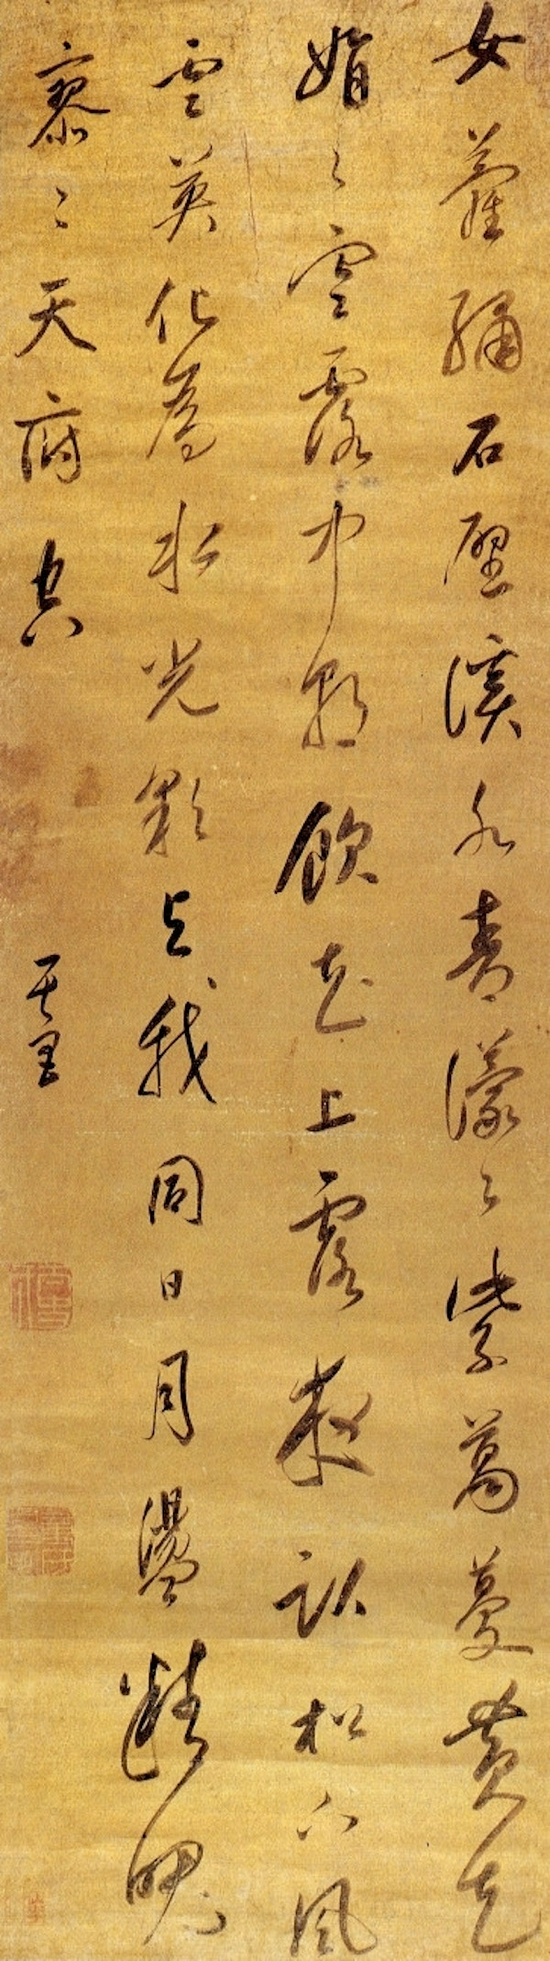 女蘿繡石壁溪水青濛々紫葛蔓黃花
娟々寒露中朝飲花上露夜臥松下風
雲英化為水光彩與我同日月盪精魄
寥々天府空
其昌